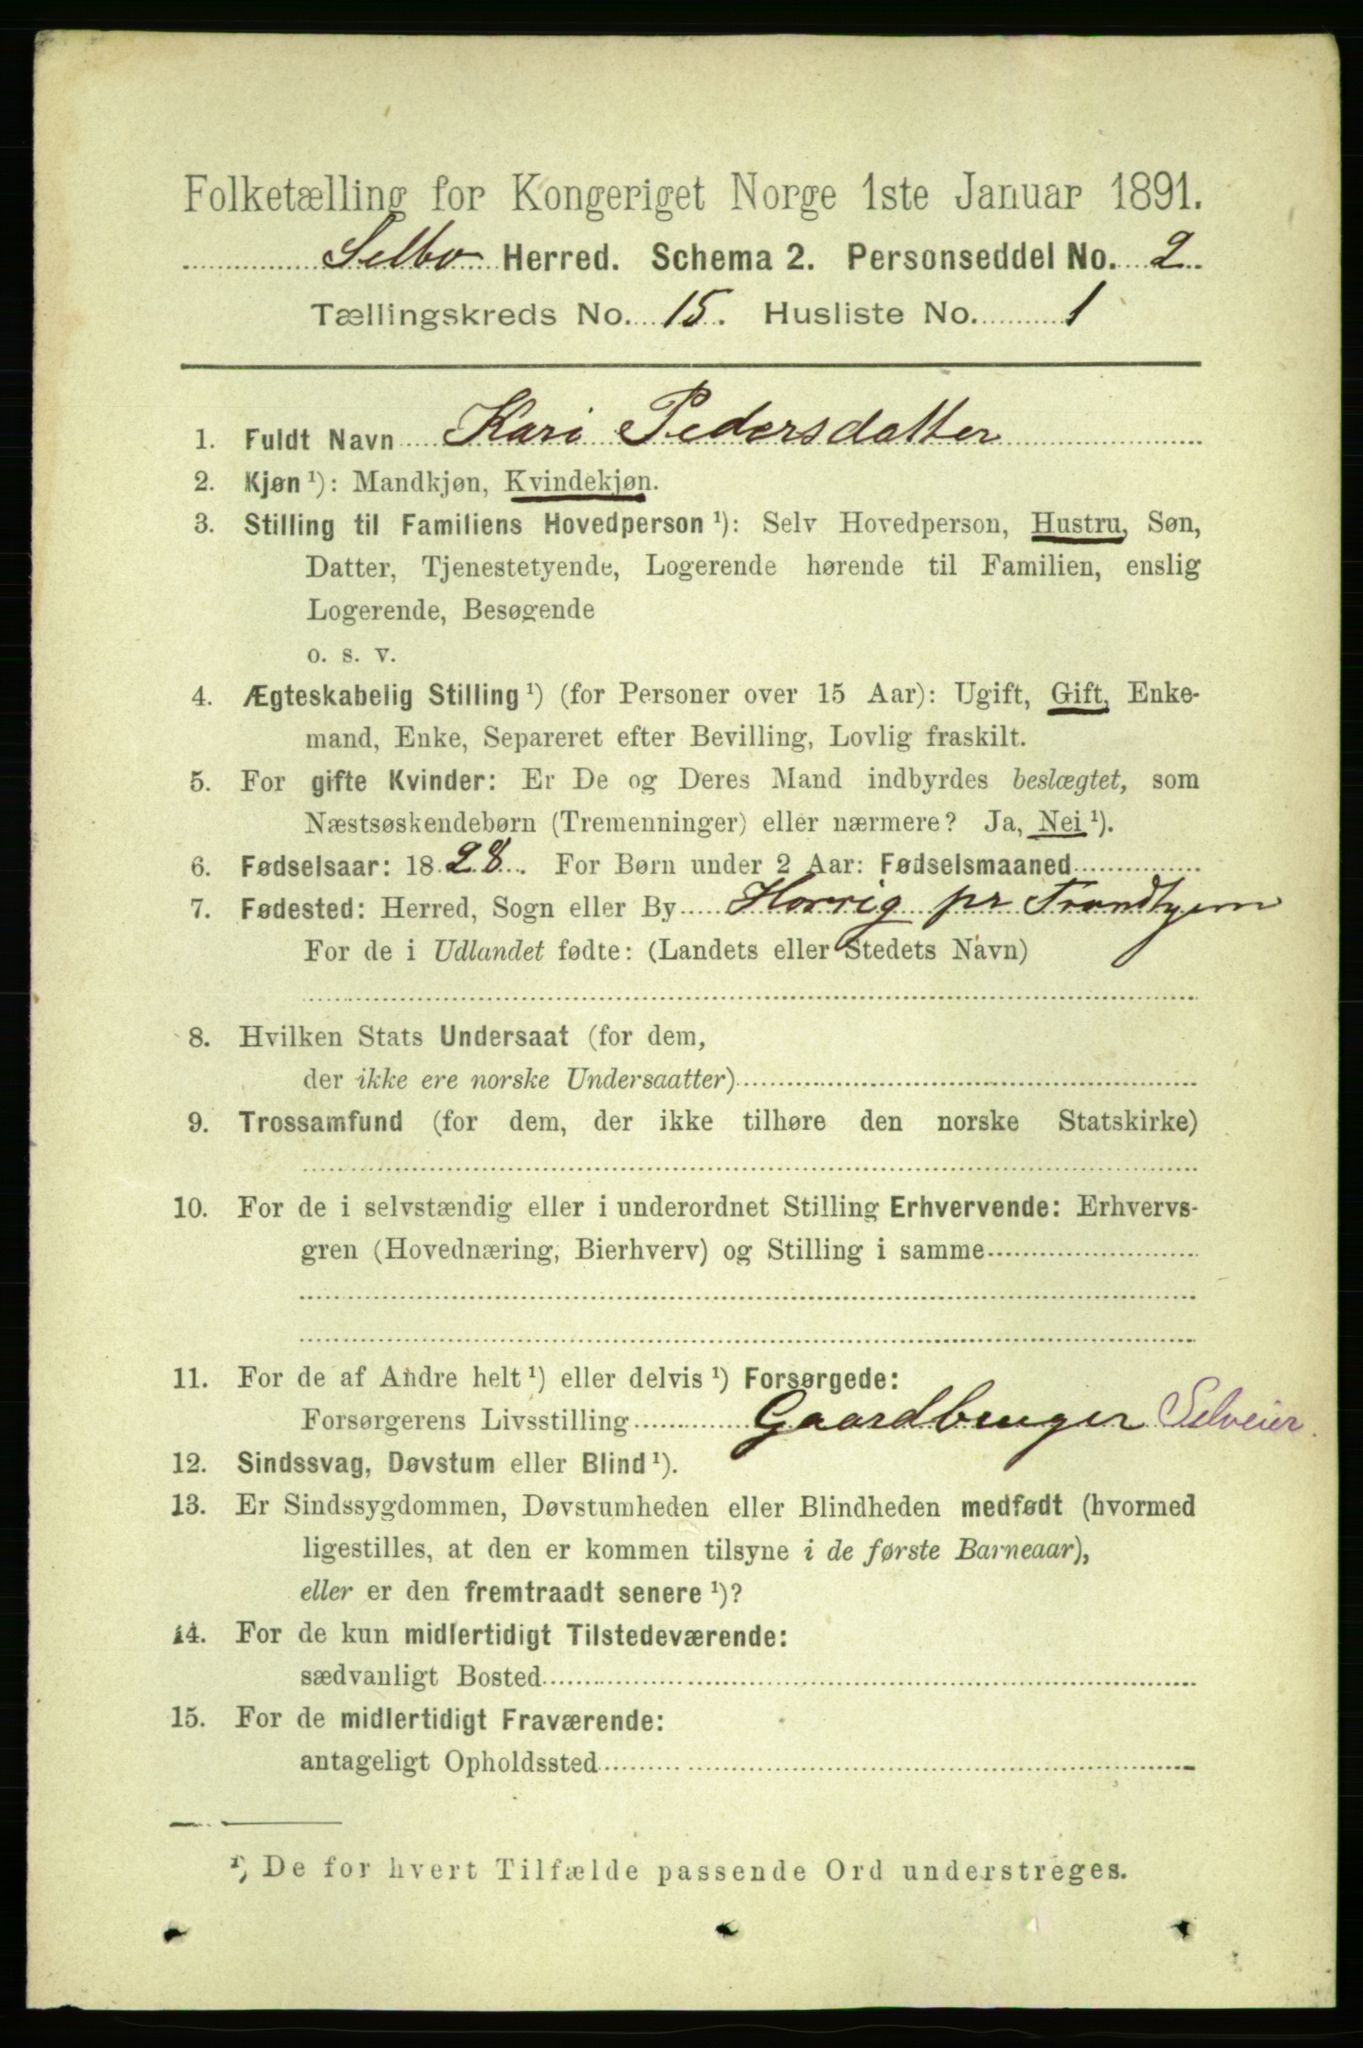 Folketælling for Kongeriget Norge 1ste Januar 1891.
Selbo Herred. Schema 2. Personseddel No. 2
Tællingskreds No. 15. Husliste No. 1
1. Fuldt Navn Kari Pedersdatter
2. Kjøn ¹): Mandkjøn, Kvindekjøn.
3. Stilling til Familiens Hovedperson ¹): Selv Hovedperson, Hustru, Søn,
Datter, Tjenestetyende, Logerende hørende til Familien, enslig
Logerende, Besøgende
o. s. v.
4. Ægteskabelig Stilling ¹) (for Personer over 15 Aar): Ugift, Gift, Enke-
mand, Enke, Separeret efter Bevilling, Lovlig fraskilt.
5. For gifte Kvinder: Er De og Deres Mand indbyrdes beslægtet, som
Næstsøskendebørn (Tremenninger) eller nærmere? Ja, Nei ¹).
6. Fødselsaar: 1828. For Børn under 2 Aar: Fødselsmaaned
7. Fødested: Herred, Sogn eller By pr Trondhjem
For de i Udlandet fødte: (Landets eller Stedets Navn)
8. Hvilken Stats Undersaat (for dem,
der ikke ere norske Undersaatter)
9. Trossamfund (for dem, der ikke tilhøre den norske Statskirke)
10. For de i selvstændig eller i underordnet Stilling Erhvervende: Erhvervs-
gren (Hovednæring, Bierhverv) og Stilling i samme
11. For de af Andre helt ¹) eller delvis ¹) Forsørgede:
Forsørgerens Livsstilling Gaardbruger Selveier.
12. Sindssvag, Døvstum eller Blind ¹).
13. Er Sindssygdommen, Døvstumheden eller Blindheden medfødt (hvormed
ligestilles, at den er kommen tilsyne i de første Barneaar),
eller er den fremtraadt senere ¹)?
14. For de kun midlertidigt Tilstedeværende:
sædvanligt Bosted
15. For de midlertidigt Fraværende:
antageligt Opholdssted
¹) De for hvert Tilfælde passende Ord understreges.